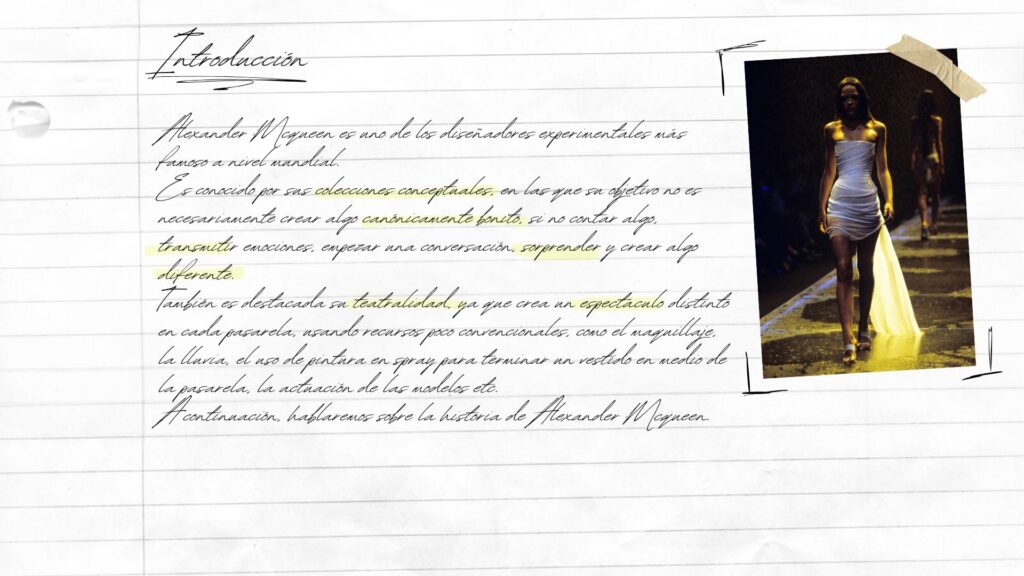 Introducción
Alexander Mcqueen es uno de los diseñadores experimentales más
famoso a nivel mundial.
Es conocido por sus colecciones conceptuales, en las que su objetivo no es
necesariamente crear algo canónicamente bonito, si no contar algo,
transmitir emociones, empezar una conversación, sorprender y crear algo
diferente.
También es destacada su teatralidad, ya que crea un espectaculo distinto
en cada pasarela, usando recursos poco convencionales, como el maquillaje,
la lluvia, el uso de pintura en spray para terminar un vestido en medio de
la pasarela, la actuación de las modelos etc.
A continuación, hablaremos sobre la historia de Alexander Mcqueen.